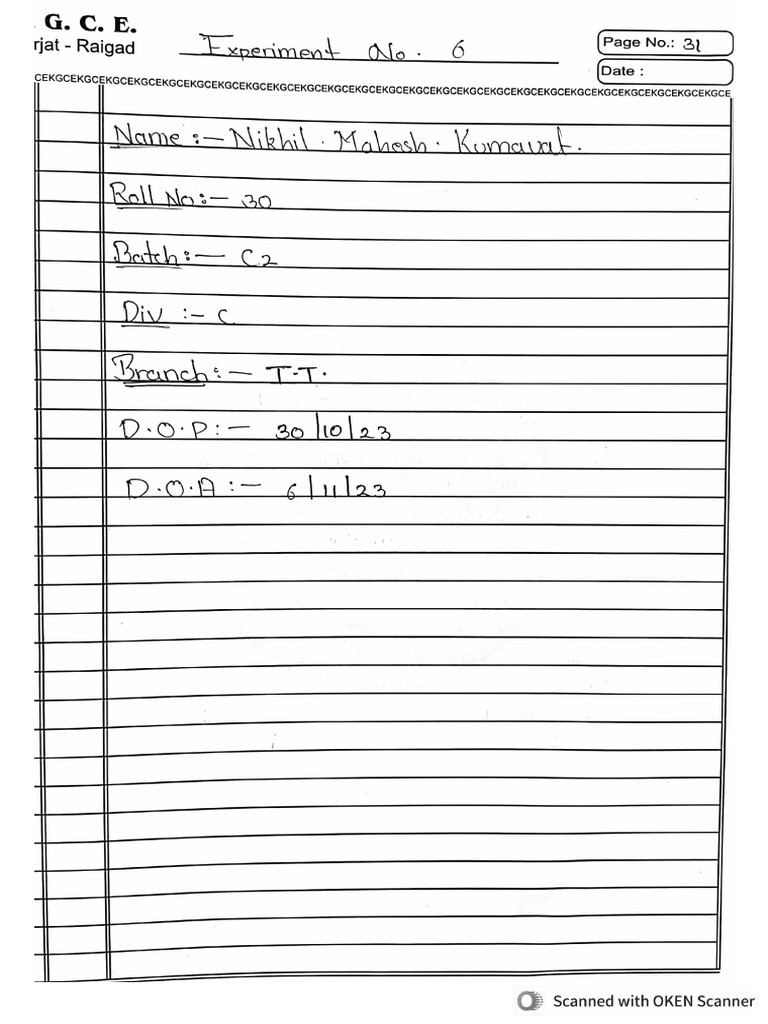 G. C. E.
rjat - Raigad
Experiment No. 6
Page No.: 31
Date :
CEKGCEKGCEKGCEKGCEKGCEKGCEKGCEKGCEKGCEKGCEKGCEKGCEKGCEKGCEKGCEKGCEKGCEKGCEKGCEKGCEKGCEKGCEKGCE
Name :- Nikhil . Mahesh . Kumavat .
Roll No :- 30
Batch :- C2
Div :- C
Branch :- I.T.
D.O.P :- 30/10/23
D.O.A :- 6/11/23
Scanned with OKEN Scanner